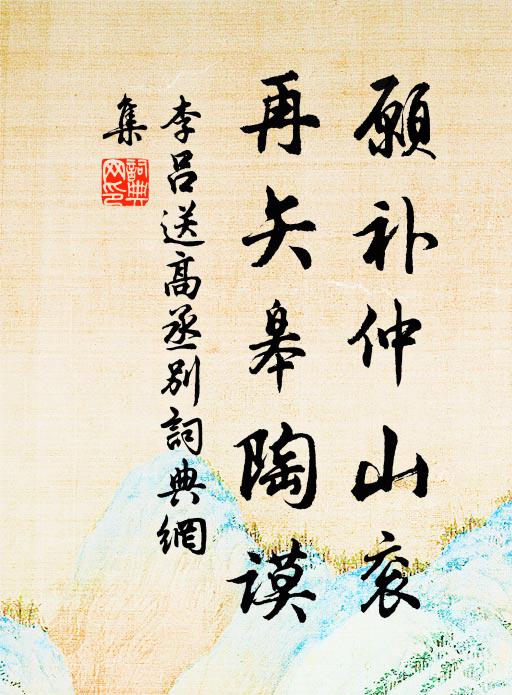 願补仲山衮
再矢皋陶謨
李呂送高丞别詞典網
集
詞典网印